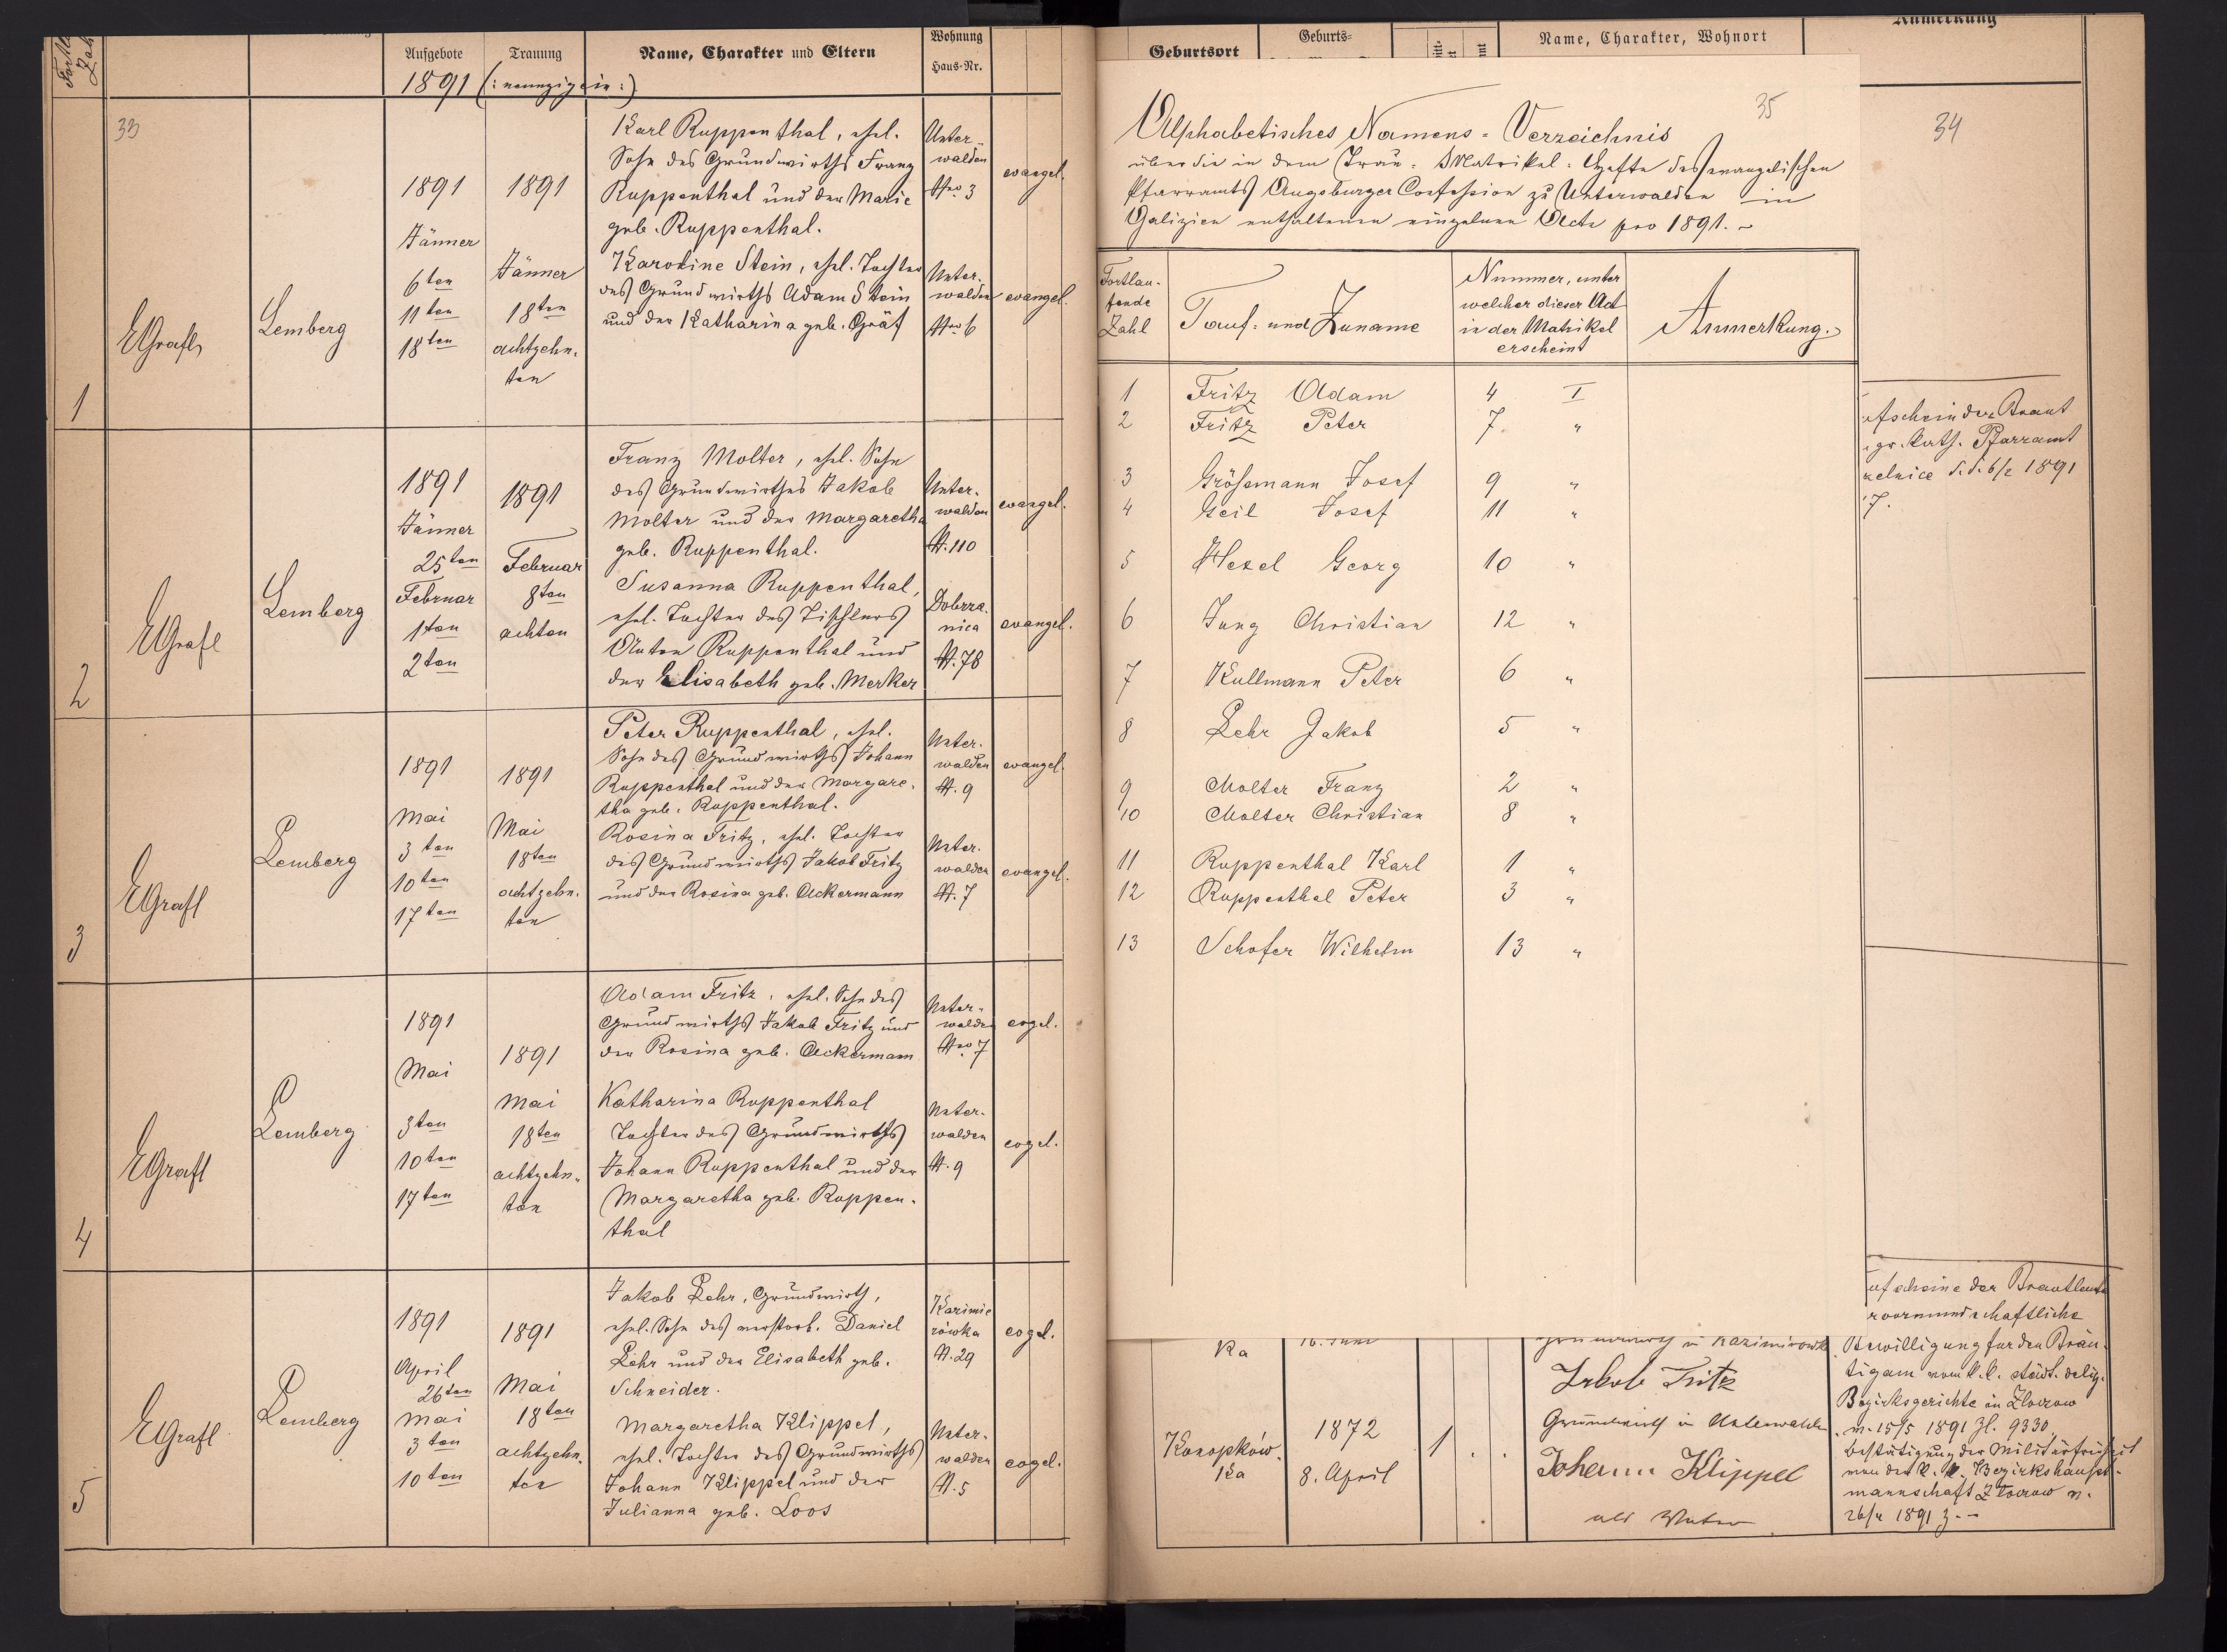 Aufgebote
Trauung
Name, Charakter und Eltern
Wohnung
Haus-Nr.
1891 (: neunzigein :)
33
1
EGrafl
Lemberg
1891
Jänner
6ten
11ten
18ten
1891
Jänner
18ten
achtzehn-
ten
Karl Ruppenthal, ehel.
Sohn des Grundwirths Franz
Ruppenthal und der Marie
geb. Ruppenthal.
Unter-
walden
Nro 3
evangel.
Karoline Stein, ehel. Tochter
des Grundwirths Adam Stein
und der Katharina geb. Gräf
Unter-
walden
Nro 6
evangel.
2
EGrafl
Lemberg
1891
Jänner
25ten
Februar
1ten
2ten
1891
Februar
8ten
achten
Franz Molter, ehel. Sohn
des Grundwirthes Jakob
Molter und der Margaretha
geb. Ruppenthal.
Unter-
walden
N. 110
evangel.
Susanna Ruppenthal,
ehel. Tochter des Tischlers
Anton Ruppenthal und
der Elisabeth geb. Merker
Dobrza-
nica
N. 78
evangel.
3
EGrafl
Lemberg
1891
Mai
3ten
10ten
17ten
1891
Mai
18ten
achtzehn-
ten
Peter Ruppenthal, ehel.
Sohn des Grundwirths Johann
Ruppenthal und der Margare-
tha geb. Ruppenthal.
Unter-
walden
N. 9
evangel.
Rosina Fritz, ehel. Tochter
des Grundwirths Jakob Fritz
und der Rosina geb. Ackermann
Unter-
walden
N. 7
evangel.
4
EGrafl
Lemberg
1891
Mai
3ten
10ten
17ten
1891
Mai
18ten
achtzehn-
ten
Adam Fritz, ehel. Sohn des
Grundwirths Jakob Fritz und
der Rosina geb. Ackermann
Unter-
walden
Nro 7
evgel.
Katharina Ruppenthal
Tochter des Grundwirths
Johann Ruppenthal und der
Margaretha geb. Ruppen-
thal
Unter-
walden
N. 9
evgel.
5
EGrafl
Lemberg
1891
April
26ten
Mai
3ten
10ten
1891
Mai
18ten
achtzehn-
ten
Jakob Lehr, Grundwirth,
ehel. Sohn des verstorb. Daniel
Lehr und der Elisabeth geb.
Schneider.
Kazimie
rówka
N. 29
evgel.
Margaretha Klippel,
ehel. Tochter des Grundwirths
Johann Klippel und der
Julianna geb. Loos
Unter-
walden
N. 5
evgel.
Geburtsort
Geburts-
Name, Charakter, Wohnort
Anmerkung
34
35
Alphabetisches Namens-Verzeichnis
über die in dem Trau-Matrikel-Hefte des evangelischen
Pfarramts Augsburger Confession zu Unterwalden in
Galizien enthaltenen einzelnen Acte pro 1891.
Fortlau-
fende
Zahl
Tauf- und Zuname
Nummer, unter
welcher dieser Act
in der Matrikel
erscheint
Anmerkung.
1 Fritz Adam 4 I
2 Fritz Peter 7. "
3 Größmann Josef 9 "
4 Geil Josef 11 "
5 Hexel Georg 10 "
6 Jung Christian 12 "
7 Kullmann Peter 6 "
8 Lehr Jakob 5 "
9 Molter Franz 2 "
10 Molter Christian 8 "
11 Ruppenthal Karl 1 "
12 Ruppenthal Peter 3 "
13 Schofer Wilhelm 13 "
ufschein der Braut
gr. kath. Pfarramt
zelnice d. d. 6/2 1891
7.
ufscheine der Brautleute
vormundschaftliche
Bewilligung für den Bräu-
tigam vom k. k. städt. delig.
Bezirksgerichte in Złoczow
v. 15/5 1891 Zl. 9330,
Bestätigung der Militärfreiheit
von der k. k. Bezirkshaupt-
mannschaft Złoczow v.
26/4 1891 Z. --
ka
16. Juni
in Kazimirowk
Jakob Fritz
Grundwirth in Unterwalden
Konopków-
ka
1872
8. April
1
Johann Klippel
als Vater